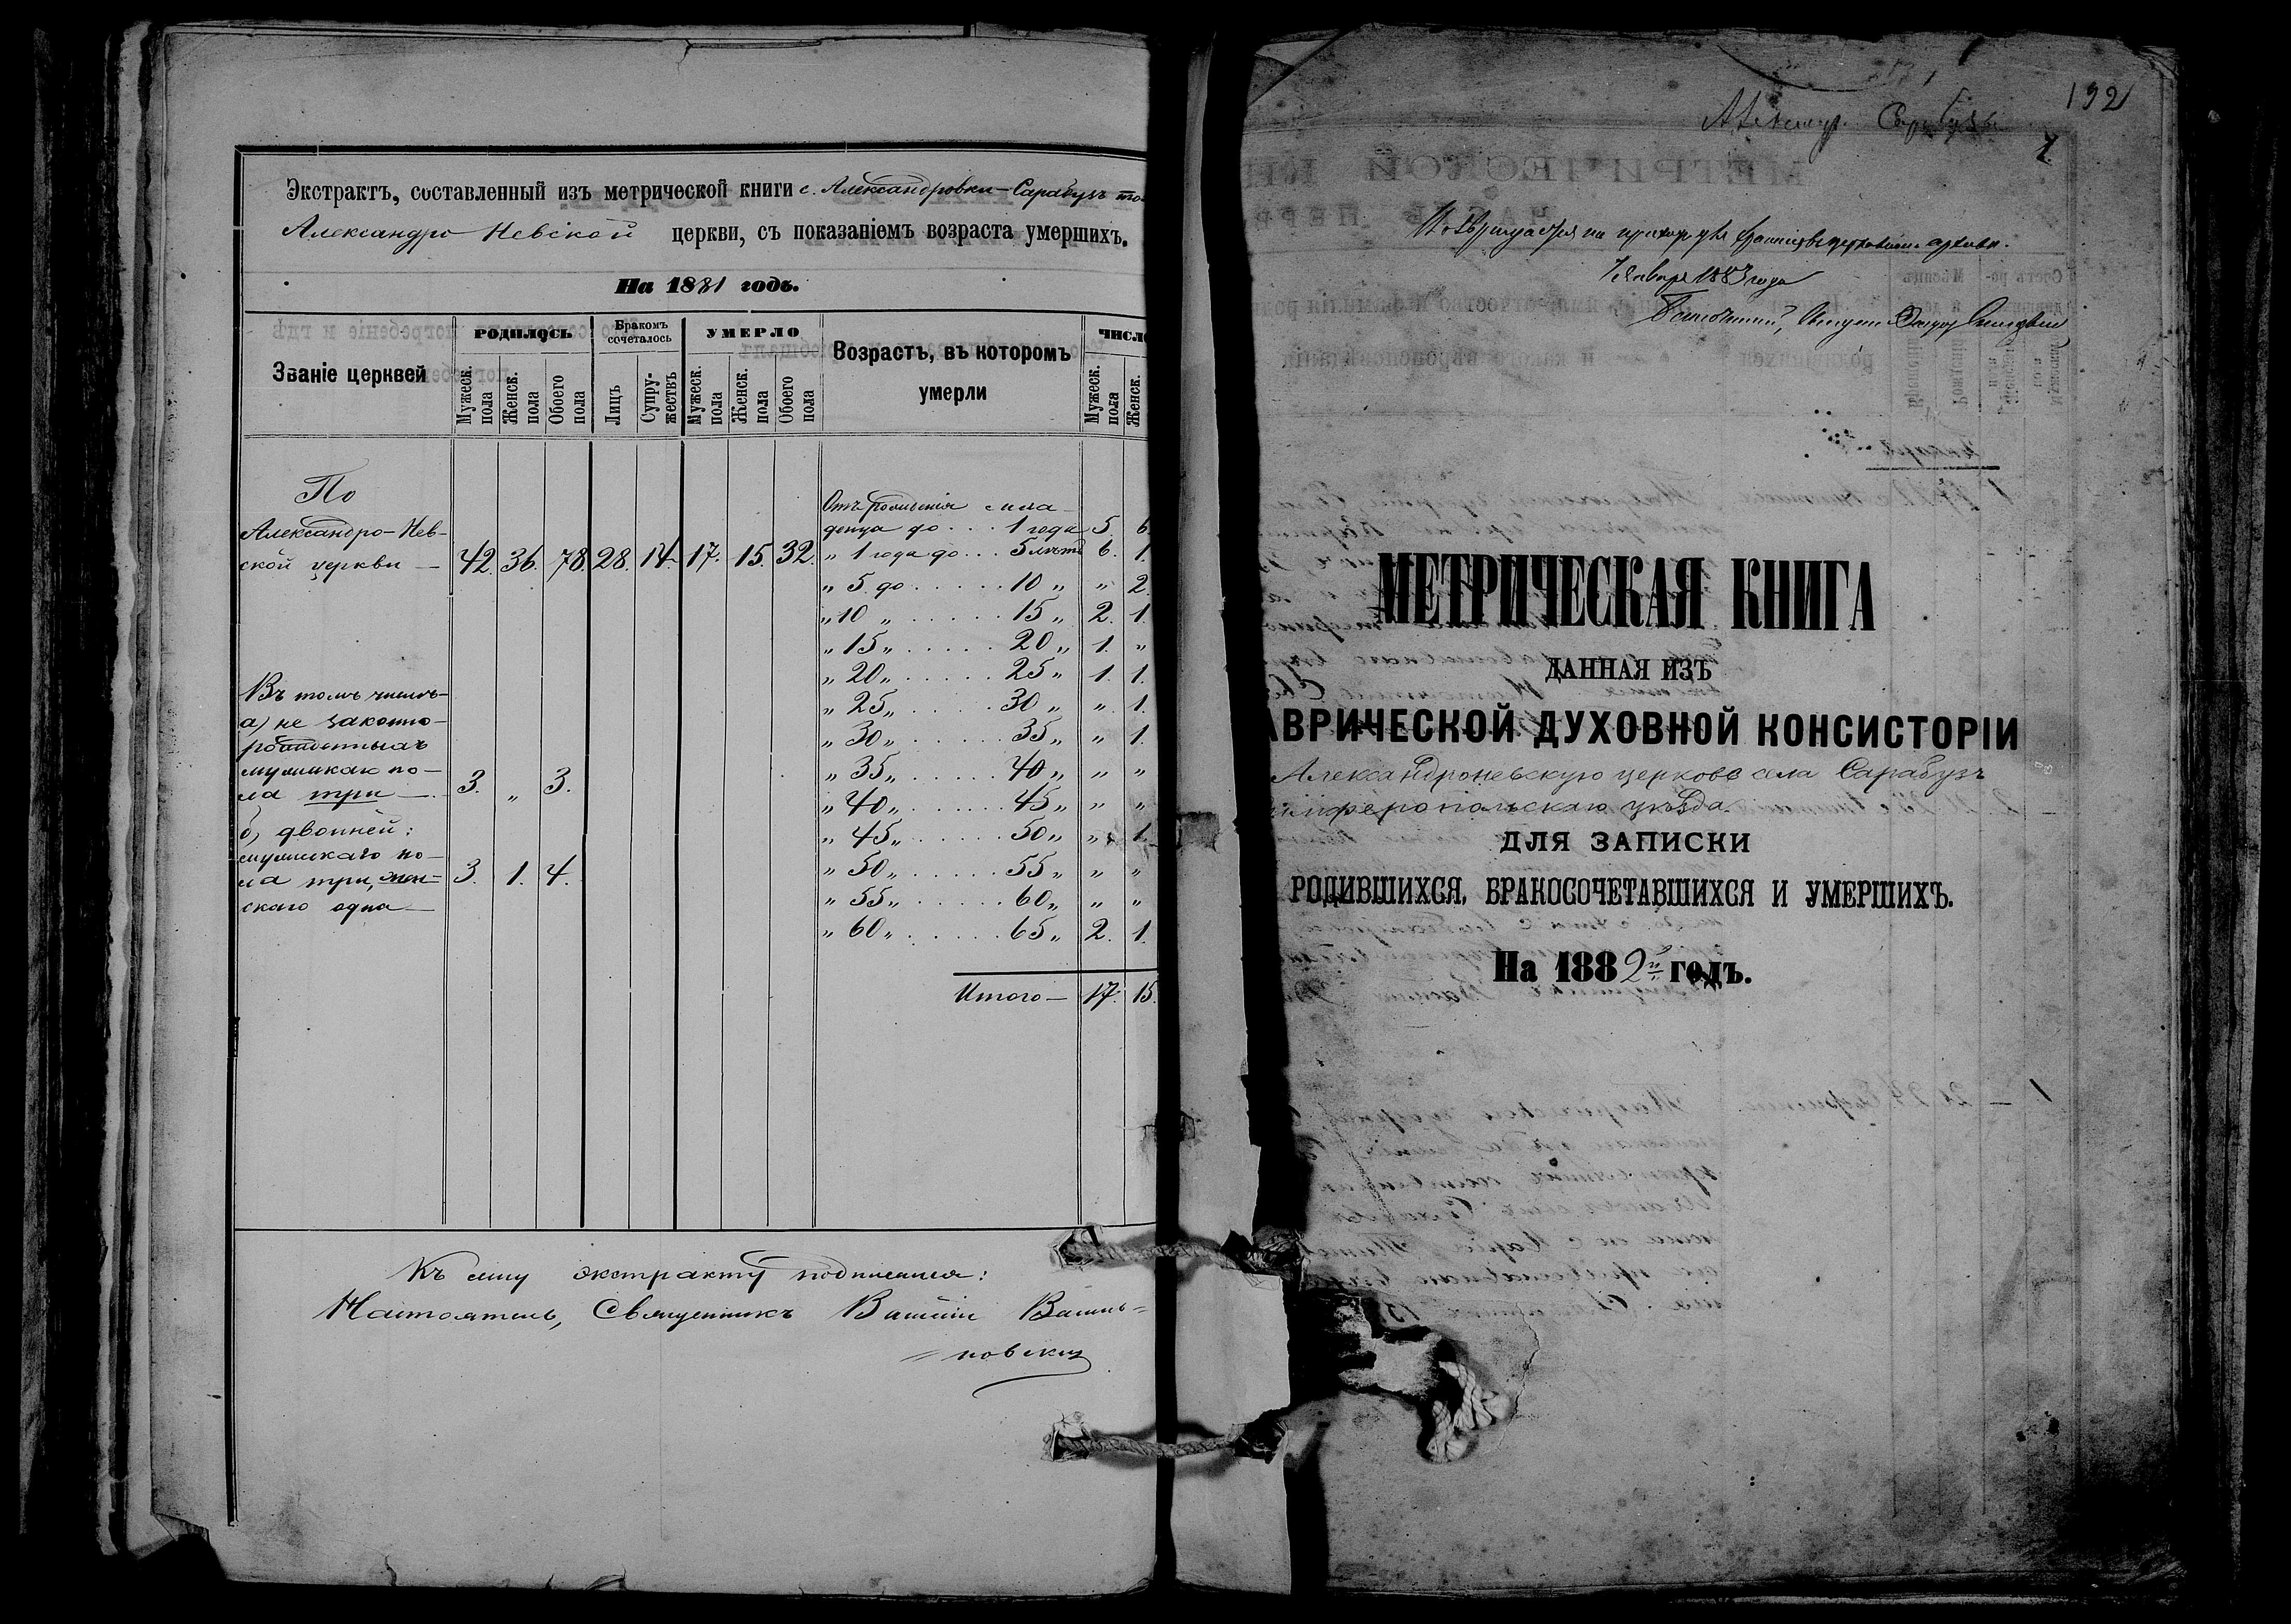 Экстрактъ, составленный изъ метрической книги с. Александровки-Сарабузъ то
Александро Невской церкви, съ показаніемъ возраста умершихъ.
На 1881 годъ.
Званіе церквей
РОДИЛОСЬ
Мужеск. пола
Женск. пола
Обоего пола
Бракомъ сочеталось
Лицъ
Супружествъ
УМЕРЛО
Мужеск. пола
Женск. пола
Обоего пола
Возрастъ, въ которомъ
умерли
ЧИСЛО
Мужеск. пола
Женск.
По
Александро-Нев-
ской церкви — 42. 36. 78. 28. 14. 17. 15. 32.
Въ томъ числѣ-
а) не законно-
рожденныхъ
мужскаго по-
ла три — 3. „ 3.
б) двойней:
мужскаго по-
ла три, жен- 3. 1. 4.
скаго одна —
Отъ рожденія мла-
денца до . . . 1 года 5. 6.
„ 1 года до . . . 5 лѣтъ 6. 1.
„ 5 до . . . . . 10 „ „ 2.
„ 10 „ . . . . . 15 „ 2. 1.
„ 15 „ . . . . . 20 „ 1. „
„ 20 „ . . . . . 25 „ 1. 1.
„ 25 „ . . . . . 30 „ „ 1.
„ 30 „ . . . . . 35 „ „ 1.
„ 35 „ . . . . . 40 „ „ „
„ 40 „ . . . . . 45 „ „ „
„ 45 „ . . . . . 50 „ „ 1.
„ 50 „ . . . . . 55 „ „ „
„ 55 „ . . . . . 60 „ „ „
„ 60 „ . . . . . 65 „ 2. 1.
Итого — 17. 15.
Къ сему экстракту подписался:
Настоятель, Священникъ Василій
новскій
192
Сарабузъ
7 Января 1883 года
МЕТРИЧЕСКАЯ КНИГА
ДАННАЯ ИЗЪ
АВРИЧЕСКОЙ ДУХОВНОЙ КОНСИСТОРІИ
Александроневскую церковь села Сарабузъ
имферопольскаго уѣзда.
ДЛЯ ЗАПИСКИ
РОДИВШИХСЯ, БРАКОСОЧЕТАВШИХСЯ И УМЕРШИХЪ.
На 1882й годъ.